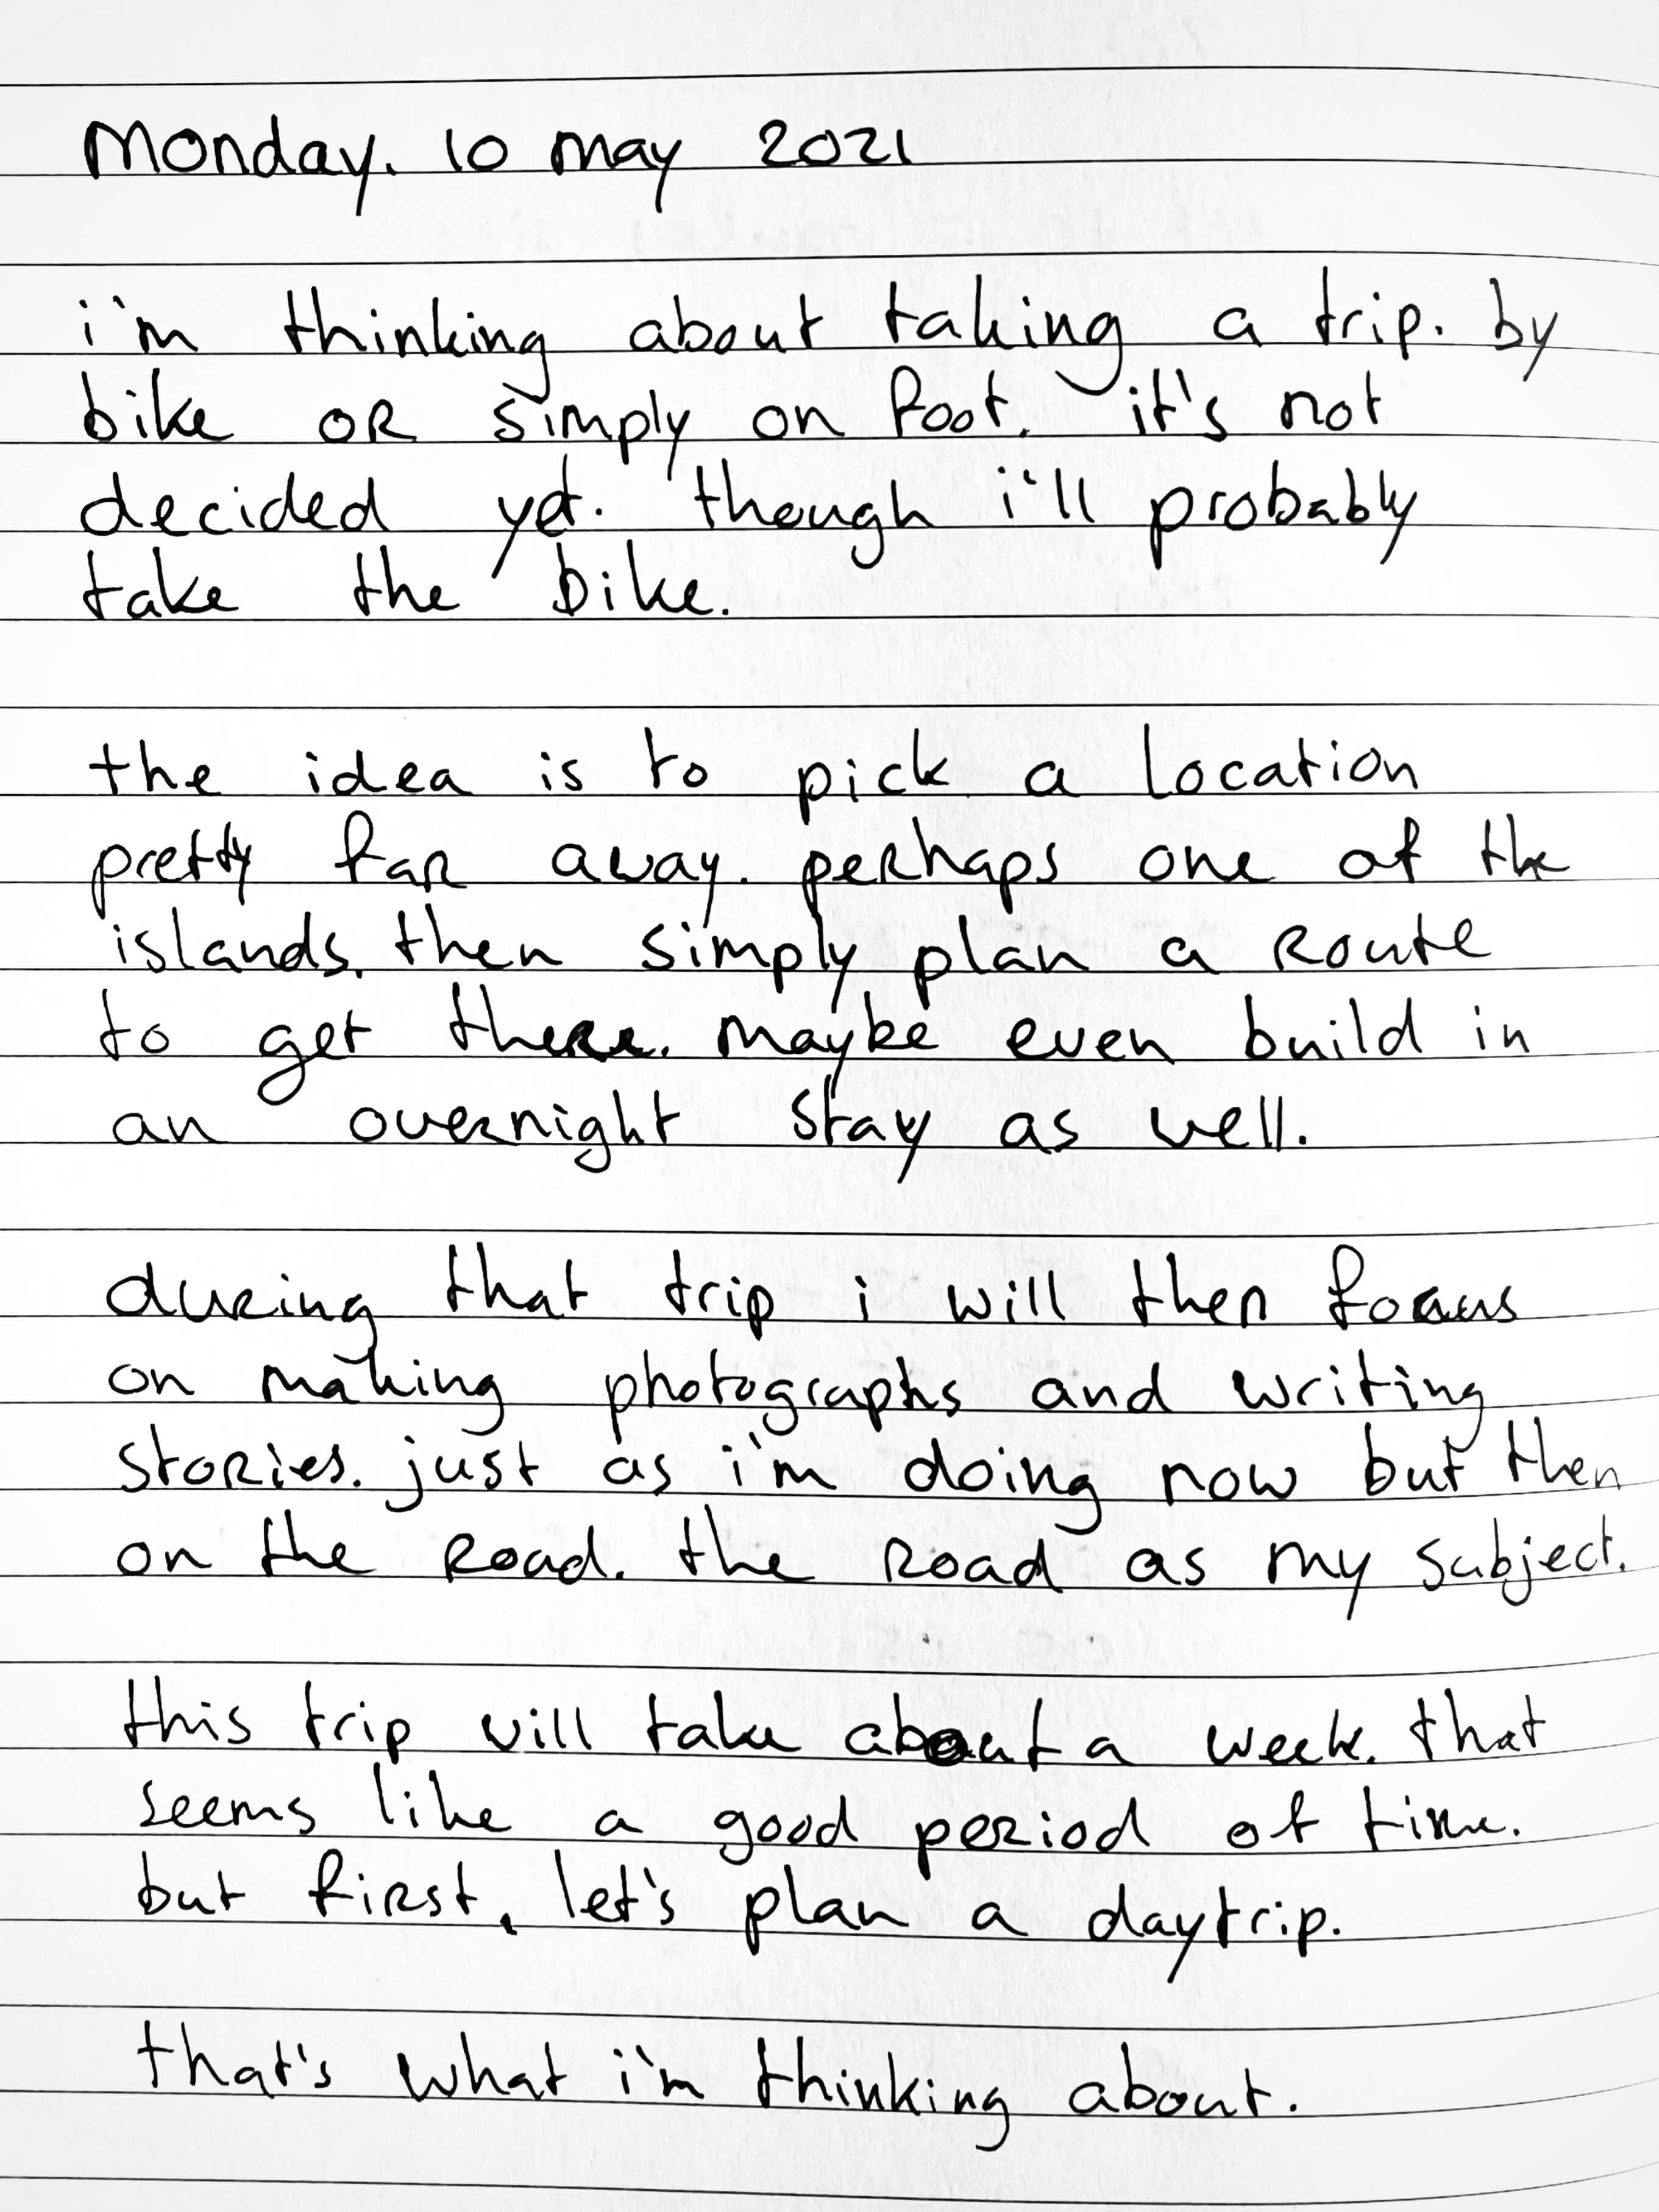 Monday. 10 may 2021
i'm thinking about taking a trip. by
bike or simply on foot. it's not
decided yet. though i'll probably
take the bike.
the idea is to pick a location
pretty far away. perhaps one of the
islands. then simply plan a route
to get there. maybe even build in
an overnight stay as well.
during that trip i will then focus
on making photographs and writing
stories. just as i'm doing now but then
on the road. the road as my subject.
this trip will take about a week. that
seems like a good period of time.
but first, let's plan a daytrip.
that's what i'm thinking about.